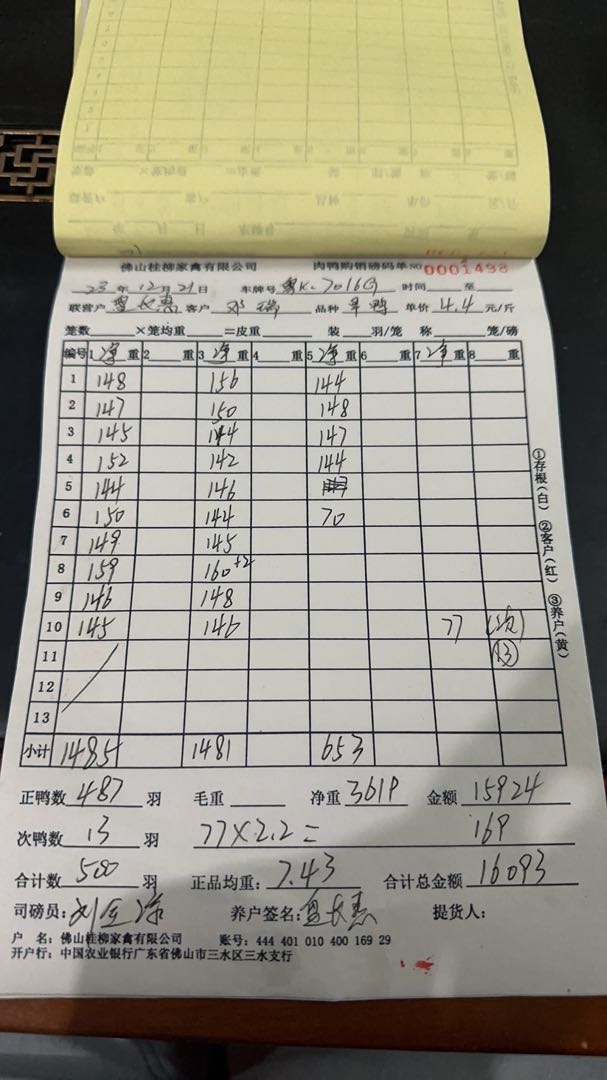 佛山桂柳家禽有限公司 肉鸭购销磅码单 NO 0001498
23 年 12 月 21 日 车牌号 粤K·7016G 时间 至
联营户 客户 邓瑞 品种 单价 4.4 元/斤
笼数 ×笼均重 =皮重 装 羽/笼 称 笼/磅
编号 1 净 重 2 重 3 净 重 4 重 5 净 重 6 重 7 净 重 8 重
1 148 156 144
2 147 150 148
3 145 144 147
4 152 142 144
5 144 146
6 150 144 70
7 149 145
8 159 160+2
9 146 148
10 145 146 77 (次)
11 13
12
13
小计 1485 1481 653
①存根(白) ②客户(红) ③养户(黄)
正鸭数 487 羽 毛重 净重 3619 金额 15924
次鸭数 13 羽 77×2.2= 169
合计数 500 羽 正品均重: 7.43 合计总金额 16093
司磅员: 养户签名: 提货人:
户 名: 佛山桂柳家禽有限公司 账号: 444 401 010 400 169 29
开户行: 中国农业银行广东省佛山市三水区三水支行